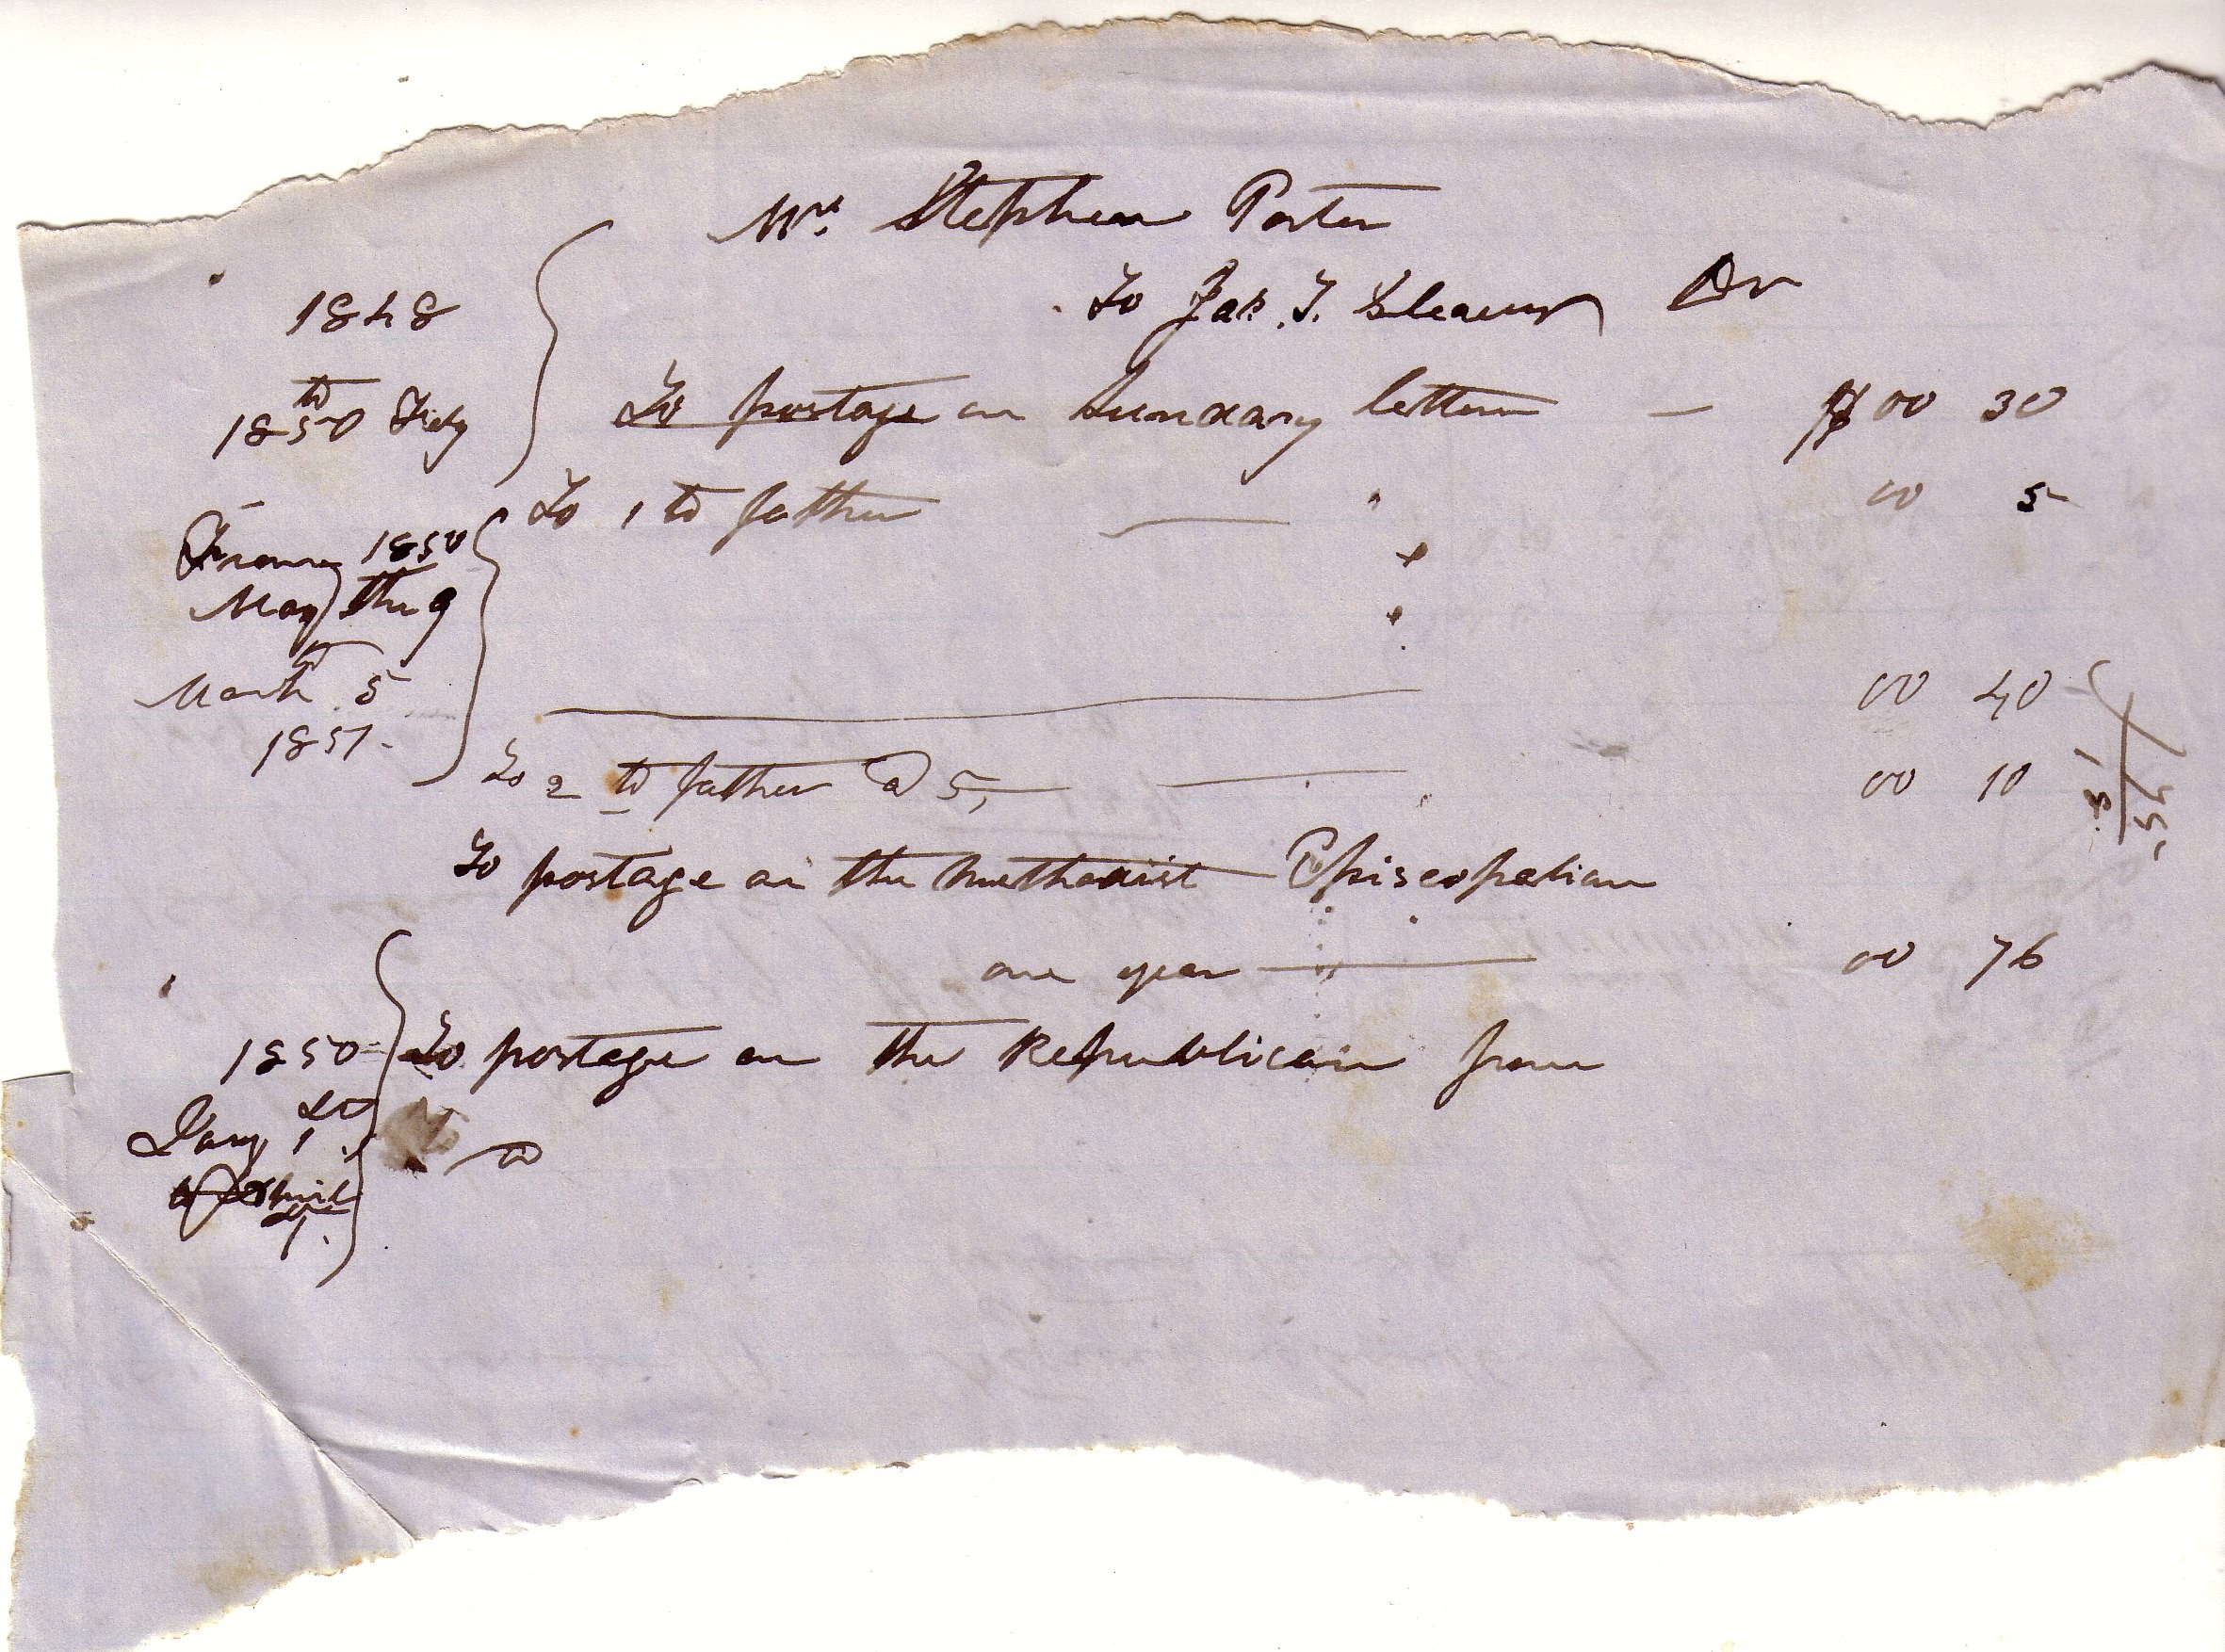 Mr. Stephen Porter
To Jas. T. Dr
1848
to
1850 Feby To postage on Sundary letters — $ 00 30
To 1 to father — " 00 5
From 1850
May the 9
to
March 5 00 40
1851.
To 2 to father @ 5, 00 10
To postage on the Methodist Episcopalian
one year — 00 76
1850 To postage on the Republican from
Jany 1st
to
to April
1.